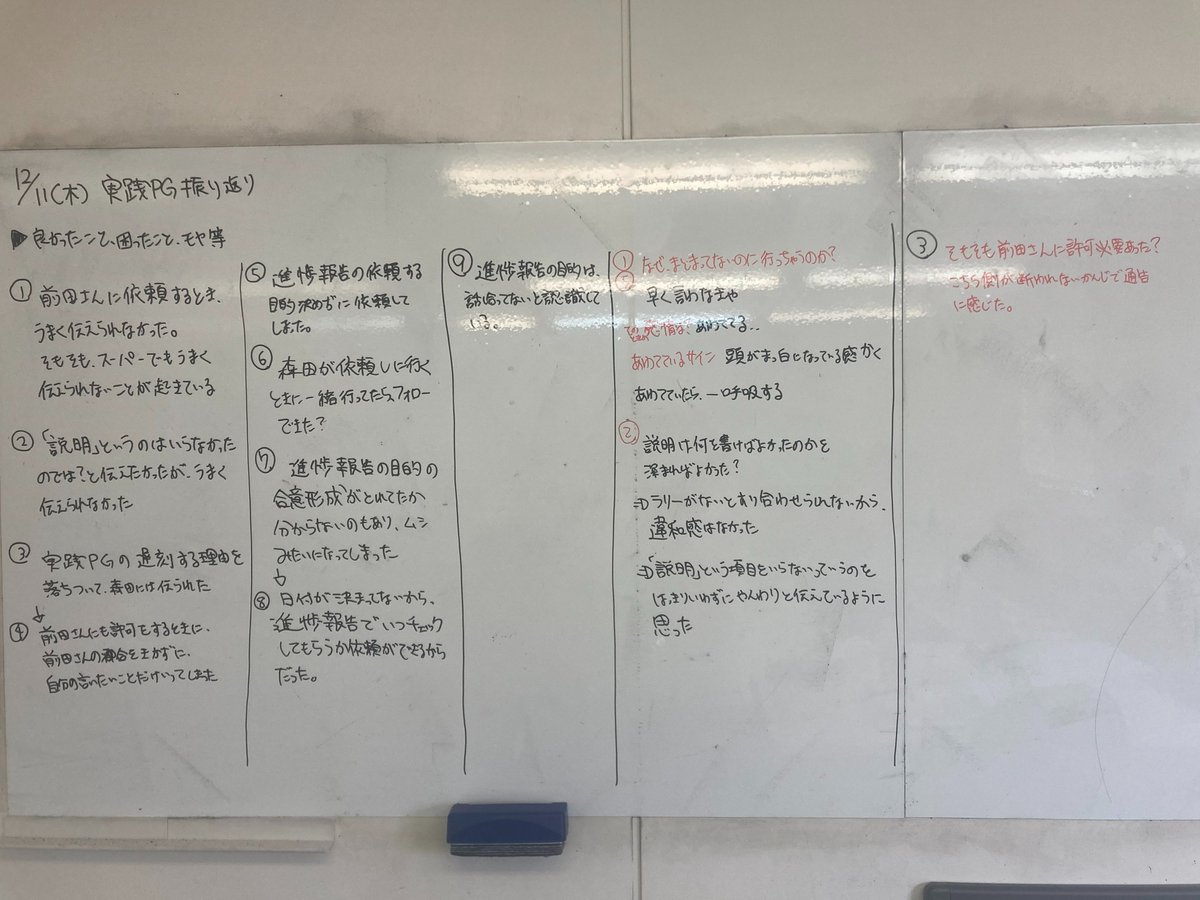 12/11(木) 実践PG振り返り
▶良かったこと、困ったこと、モヤ等
① 前田さんに依頼するとき、
うまく伝えられなかった。
そもそも、スーパーでもうまく
伝えられないことが起きている
② 「説明」というのはいらなかった
のでは?と伝えたかったが、うまく
伝えられなかった
③ 実践PGの遅刻する理由を
落ちついて、森田には伝られた
↓
④ 前田さんにも許可をするときに、
前田さんの都合をきかずに、
自分の言いたいことだけいってしまった
⑤ 進捗報告の依頼する
目的決めずに依頼して
しまった。
⑥ 森田が依頼しに行く
ときに一緒行ってたら、フォロー
できた?
⑦ 進捗報告の目的の
合意形成がとれてたか
分からないのもあり、ムシ
みたいになってしまった
↓
⑧ 日付が決まってないから、
進捗報告でいつチェック
してもらうか依頼ができるから
だった。
⑨ 進捗報告の目的は、
話し合ってないと認識して
いる。
① なぜ、まとまってないのに行っちゃうのか?
② 早く言わなきゃ
感情は、あわててる..
あわてているサイン 頭がまっ白になっている感かく
あわてていたら、一呼吸する
② 説明は何を書けばよかったのかを
深まればよかった?
→ラリーがないとすり合わせられないから、
違和感はなかった
→「説明」という項目をいらないっていうのを
はっきりいわずにやんわりと伝えているように
思った
③ そもそも前田さんに許可必要あった?
こちら側が断われないかんじで通告
に感じた。